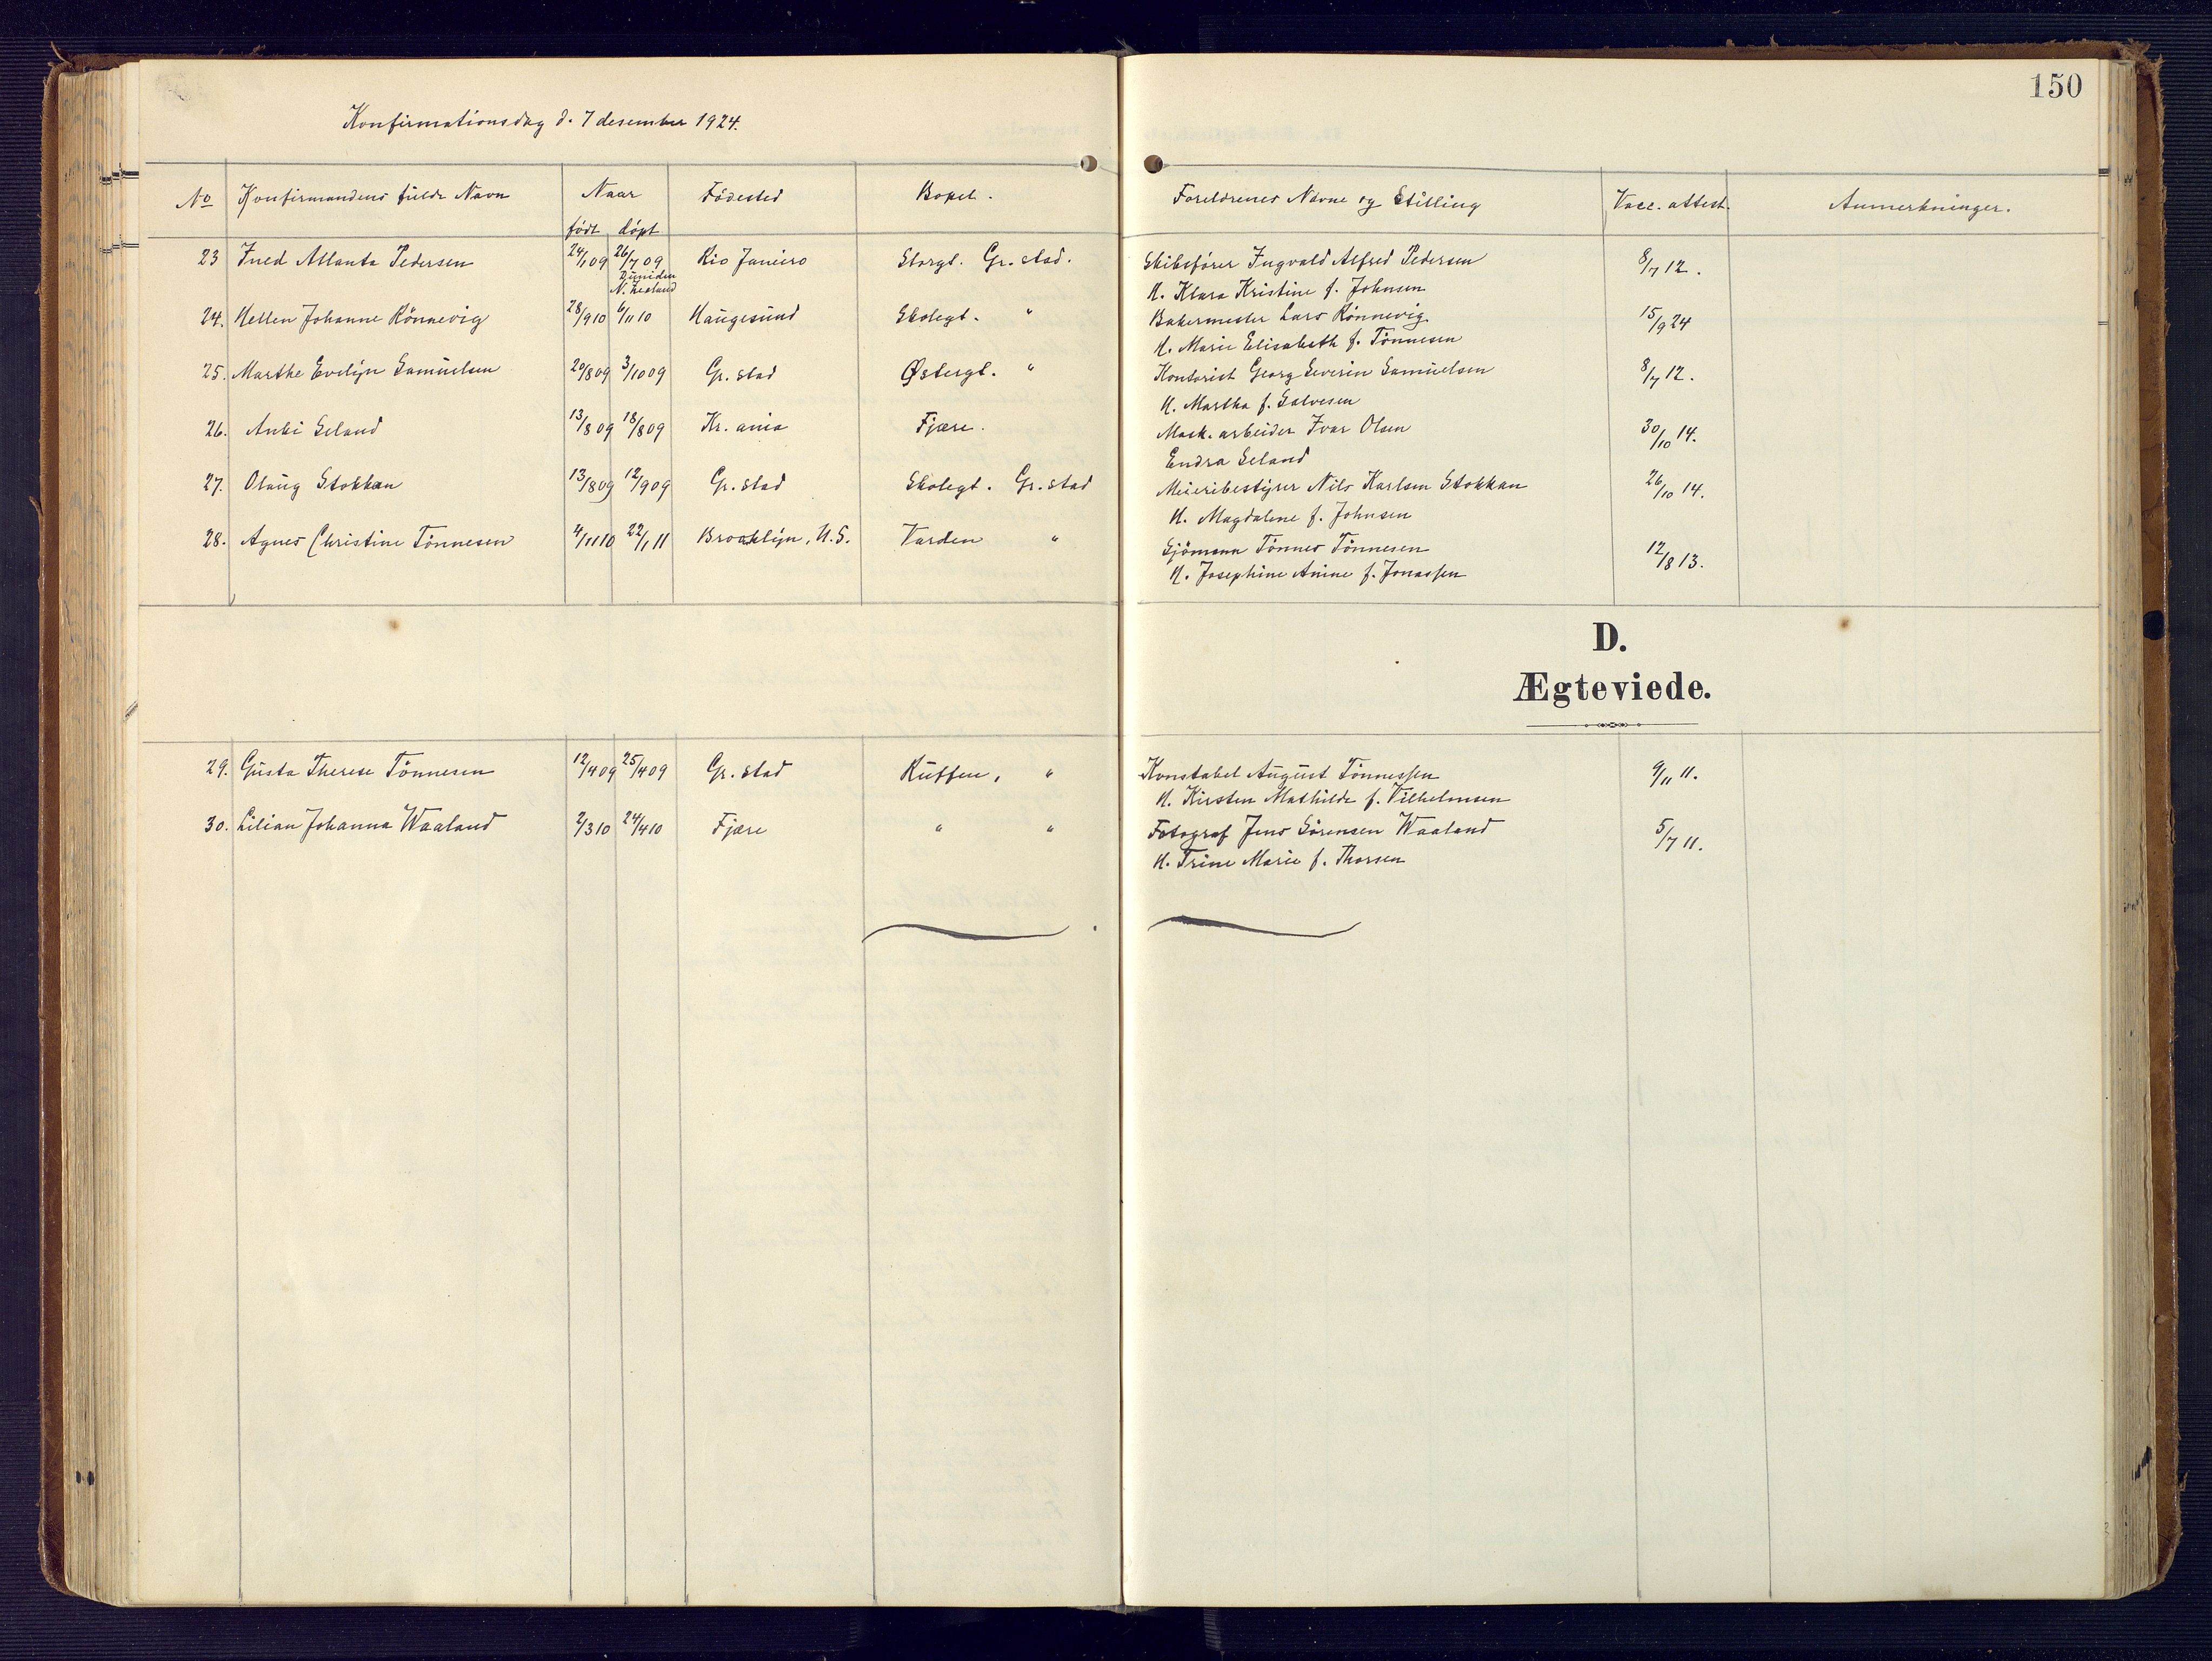 150
Konfirmationsdag d. 7 desember 1924.
No Konfirmandens fulde Navn Naar Födested Bopel. Foreldrenes Navne og Stilling Vacc. attest. Anmerkninger.
födt döpt
23 Ined Atlanta Pedersen 24/1 09 26/7 09 Rio Janeiro Storgt. Gr.stad. Skibsförer Ingvald Alfred Pedersen 8/7 12.
Duniden
N. Zealand H. Klara Kristine f. Johnsen
24. Hellen Johanne Rönnevig 28/9 10 6/11 10 Haugesund Skolegt. " Bakermester Lars Rönnevig 15/9 24
H. Marie Elisabeth f. Tönnesen
25. Marthe Evelyn Samuelsen 20/8 09 3/10 09 Gr. stad Østergt. " Kontorist Georg Severin Samuelsen 8/7 12.
H. Martha f. Salvesen
26. Anki Seland 13/8 09 18/8 09 Kr. ania Fjære. Mask. arbeider Ivar Olsen 30/10 14.
Endra Seland
27. Olaug Stokkan 13/8 09 12/9 09 Gr. stad Skolegt. Gr. stad Meieribestyrer Nils Karlsen Stokkan 26/10 14.
H. Magdalene f. Johnsen
28. Agnes Christine Tönnesen 4/11 10 22/1 11 Brooklyn, U.S. Varden " Sjömann Tönnes Tönnesen 12/8 13.
H. Josephine Anine f. Jonassen
D.
Ægteviede.
29. Gusta Therese Tönnesen 12/4 09 25/4 09 Gr. stad Kuffen, " Konstabel August Tönnessen 9/11 11.
H. Kirsten Mathilde f. Vilhelmsen
30. Lilian Johanna Waaland 2/3 10 24/4 10 Fjære " " Fotograf Jens Sörensen Waaland 5/7 11.
H. Trine Marie f. Thorsen